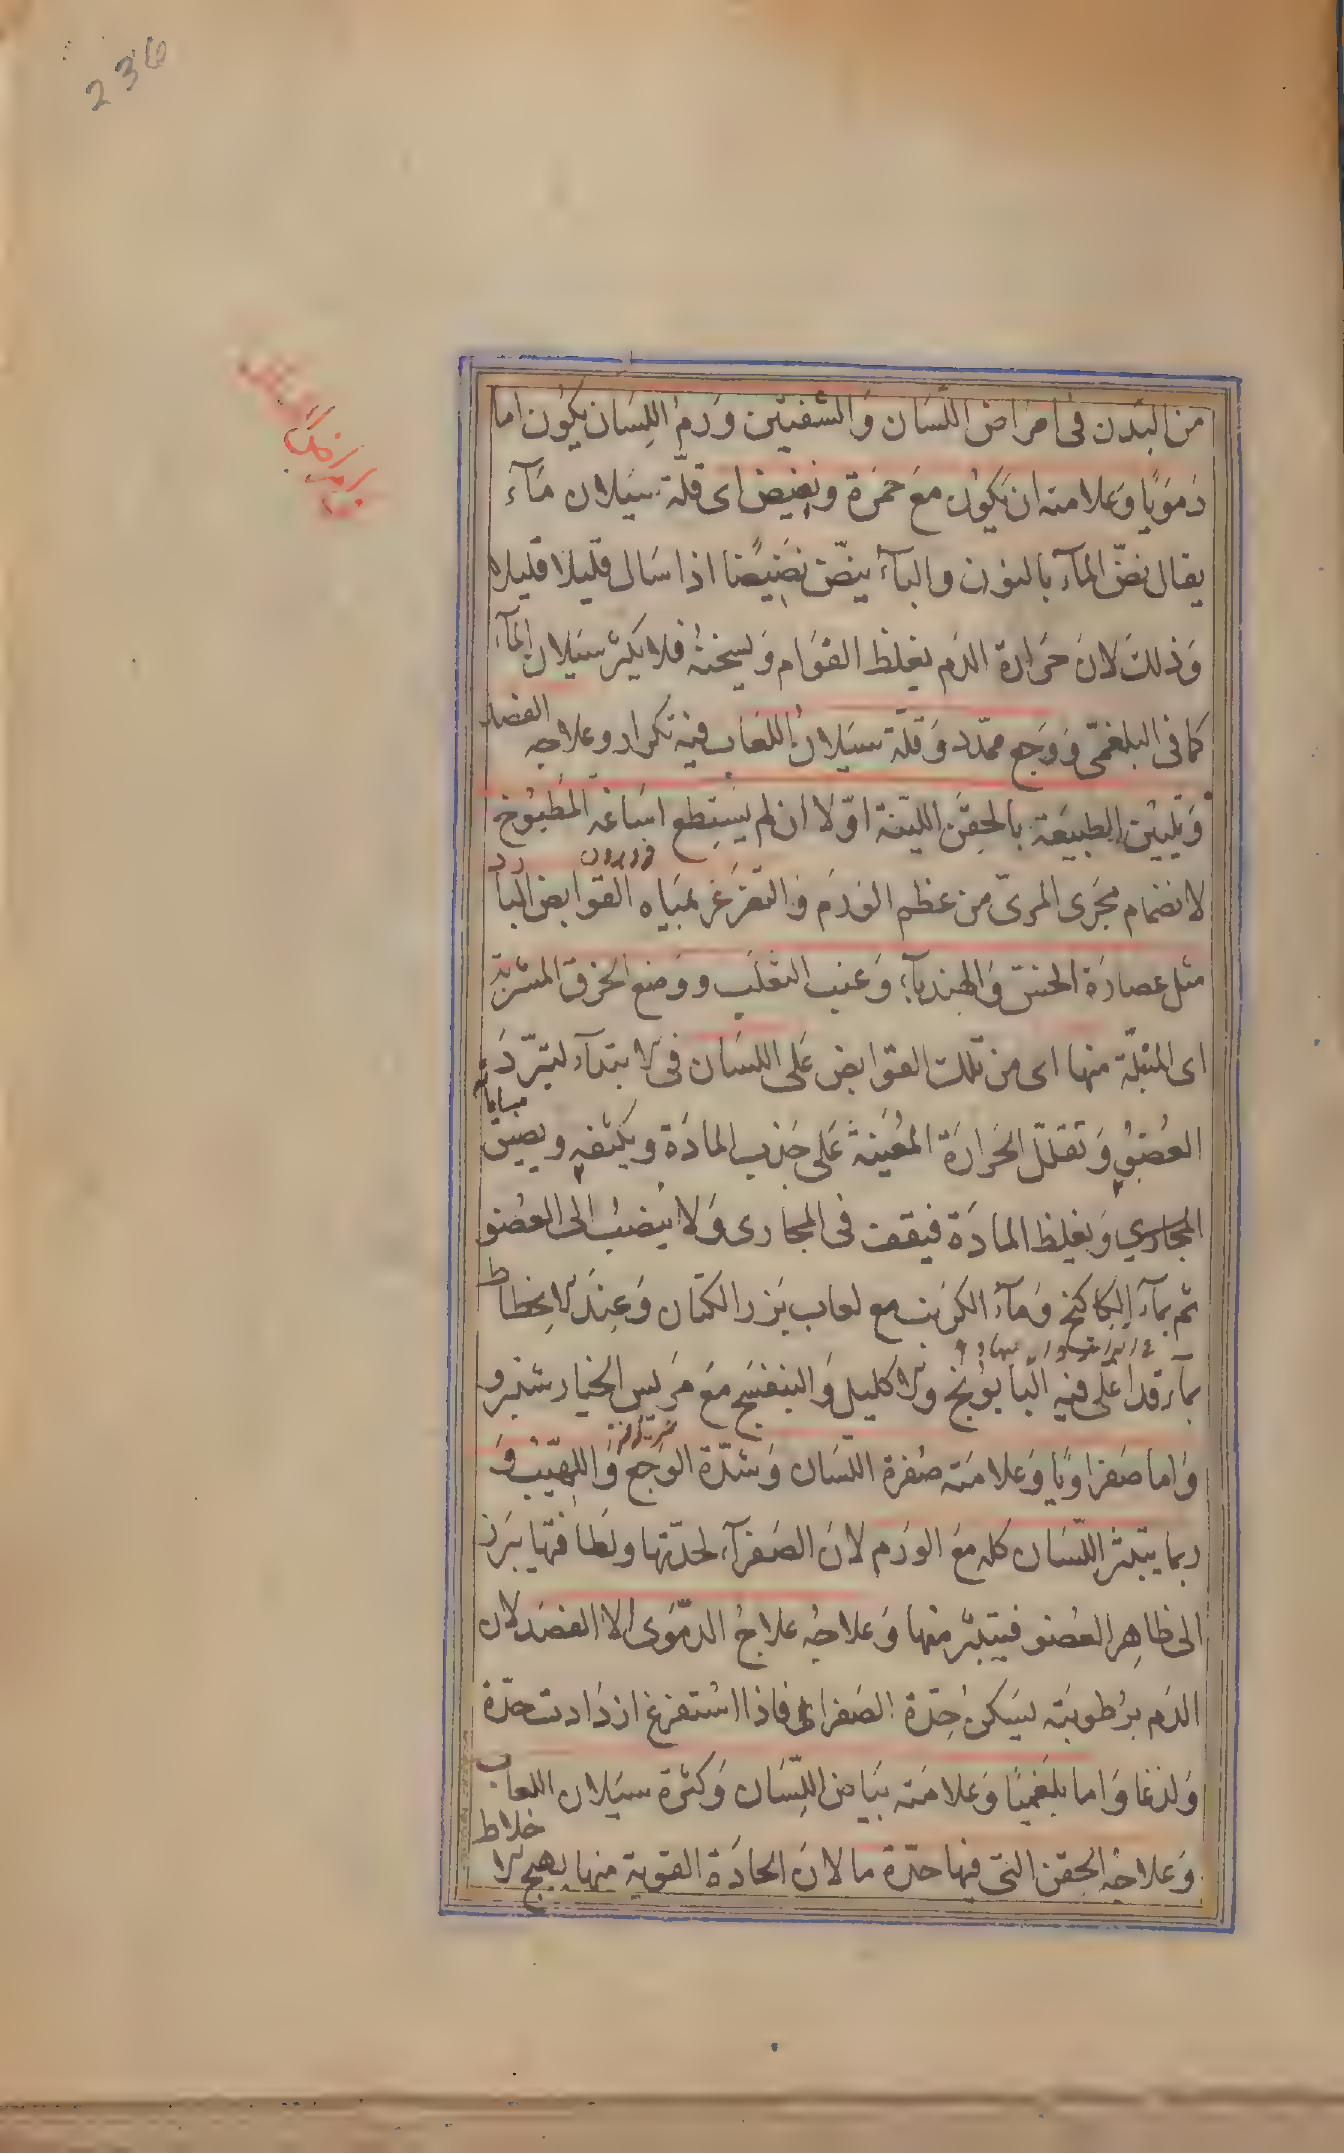 236
في امراض اللسان
من البدن في امراض اللسان والشفتين ورم اللسان يكون اما
دمويا وعلامته ان يكون مع حمرة ونضيض اى قلة سيلان مآء
يقال نضّ المآء بالنون والبآء ينضّ نضيضا اذا سال قليلا قليلا
وذلك لان حرارة الدم يغلظ القوام ويسخنه فلا يكثر سيلان المآء
كما فى البلغمى ووجع ممدد وقلة سيلان اللعاب فيه تكرار وعلاجه الفصد
وتليين الطبيعة بالحقن اللينة اوّلا ان لم يستطع اساغة المطبوخ
فرو بردن
لانضمام مجرى المرىّ من عظم الورم والتغرغر بمياه القوابض الباردة
مثل عصارة الخس والهندبآء وعنب الثعلب ووضع الخرق المشربة
اى المبتلّة منها اى من تلك القوابض على اللسان فى الابتدآء لتبرّد
العضو وتقلل الحرارة المعينة على جذب المادة ويكثفه ويضيق
المجارى ويغلظ المادة فيقف فى المجارى ولا ينصب الى العضو
ثم بمآء الكاكنج ومآء الكرنب مع لعاب بزر الكتان وعند الانحطاط
بمآء قد اغلى فيه البابونج والاكليل والبنفسج مع مرس الخيار شنبر و
واما صفراويا وعلامته صفرة اللسان وشدة الوجع واللهيب و
ربما يتبثر اللسان كله مع الورم لان الصفرآء لحدّتها ولطافتها يبرز
الى ظاهر العضو فيتبثّر منها وعلاجه علاج الدموى الا الفصد لان
الدم برطوبته يسكن حدّة الصفراء فاذا استفرغ ازدادت حدّة
ولذغا واما بلغميا وعلامته بياض اللسان وكثرة سيلان اللعاب
وعلاجه الحقن التى فيها حدّة ما لان الحادة القوية منها يهيج الاخلاط